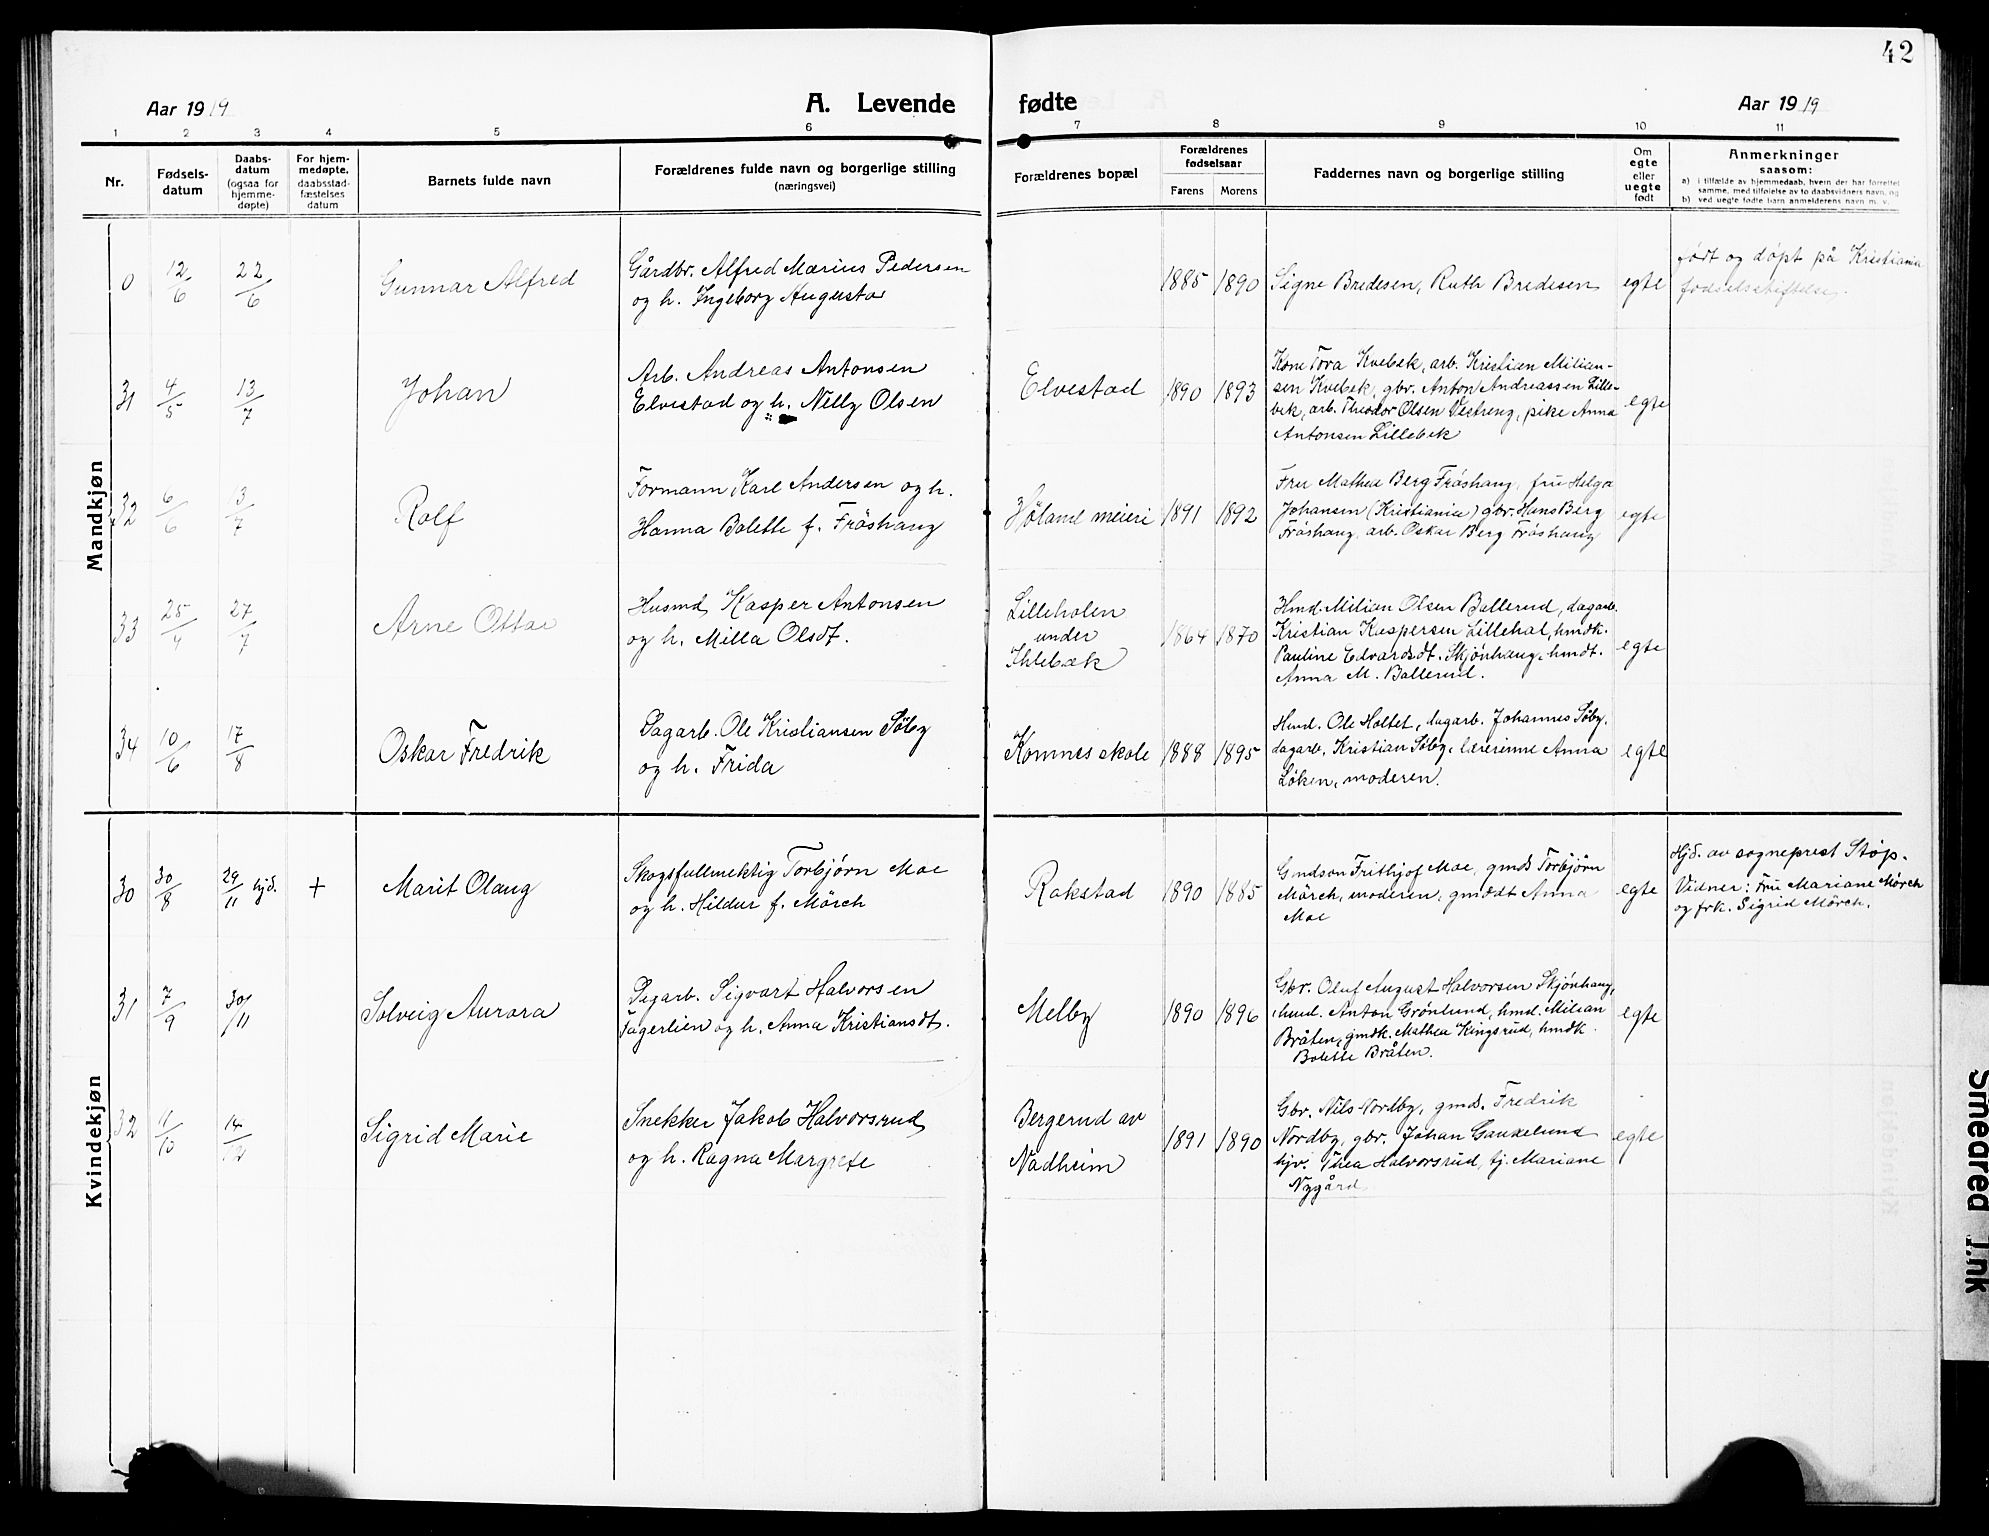 42
Aar 1919
A. Levende
fødte
Aar 1919
1 2 3 4 5 6 7 8 9 10 11
Nr.
Fødsels-
datum
Daabs-
datum
(ogsaa for
hjemme-
døpte)
For hjem-
medøpte,
daabsstad-
fæstelses
datum
Barnets fulde navn
Forældrenes fulde navn og borgerlige stilling
(næringsvei)
Forældrenes bopæl
Forældrenes
fødselsaar
Farens Morens
Faddernes navn og borgerlige stilling
Om
egte
eller
uegte
født
Anmerkninger
saasom:
a) i tilfælde av hjemmedaab, hvem der har forrettet
samme, med tilføielse av to daabsvidners navn, og
b) ved uegte fødte barn anmelderens navn m. v.
Mandkjøn
0 12/6 22/6 Gunnar Alfred
Gårdbr. Alfred Marius Pedersen
og h. Ingeborg Augusta
1885 1890
Signe Bredesen, Ruth Bredesen
egte
født og døpt på Kristiania
fødselsstiftelse.
31 4/5 13/7 Johan
Arb. Andreas Antonsen
Elvestad og h. Nelly Olsen
Elvestad 1890 1893
Kone Tora Kvebek, arb. Kristian Milian-
sen Kvebek, gbr. Anton Andreassen Lille-
bek, arb. Theodor Olsen Vestreng, pike Anna
Antonsen Lillebek
egte
32 6/6 13/7 Rolf
Formann Karl Andersen og h.
Hanna Bolette f. Fröshaug
Høland meieri 1891 1892
Fru Mathea Berg Fröshaug, fru Helga
Johansen (Kristiania) gbr. Hans Berg
Fröshaug, arb. Oskar Berg Fröshaug
egte
33 25/4 27/7 Arne Ottar
Husmd. Kasper Antonsen
og h. Milla Olsdt.
Lilleholen
under
Ihlebæk
1864 1870
Hmd. Milian Olsen Ballerud, dagarb.
Kristian Kaspersen Lillehol, hmdk.
Pauline Edvardsdt. Skjönhaug, hmdt.
Anna M. Ballerud.
egte
34 10/6 17/8 Oskar Fredrik
Dagarb. Ole Kristiansen Søby
og h. Frida
Komnes skole 1888 1895
Hmd. Ole Holtet, dagarb. Johannes Søby,
dagarb. Kristian Søby, lærerinne Anna
Løken, moderen.
egte
Kvindekjøn
30 30/8 29/11 hjd. + Marit Olaug
Skogsfullmektig Torbjørn Moe
og h. Hildur f. Mörch
Rakstad 1890 1885
Gmdsøn Frithjof Moe, gmds Torbjörn
Mörch, moderen, gmddt Anna
Moe
egte
Hjd. av sogneprest Støp.
Vidner: Fru Mariane Mörch
og frk. Sigrid Mörch.
31 7/9 30/11 Solveig Aurora
Dagarb. Sigvart Halvorsen
Fagerlien og h. Anna Kristiansdt.
Melby 1890 1896
Gbr. Oluf August Halvorsen Skjönhaug,
hmd. Anton Grönlund, hmd. Milian
Bråten, gmdk. Mathea Kingsrud, hmdk
Bolette Bråten.
egte
32 11/10 14/12 Sigrid Marie
Snekker Jakob Halvorsrud
og h. Ragna Margrete
Bergerud av
Nadheim
1891 1890
Gbr. Nils Nordby, gmds. Fredrik
Nordby, gbr. Johan Gaukelund
hjv. Thea Halvorsrud, tj. Mariane
Nygård
egte
Smeared Ink